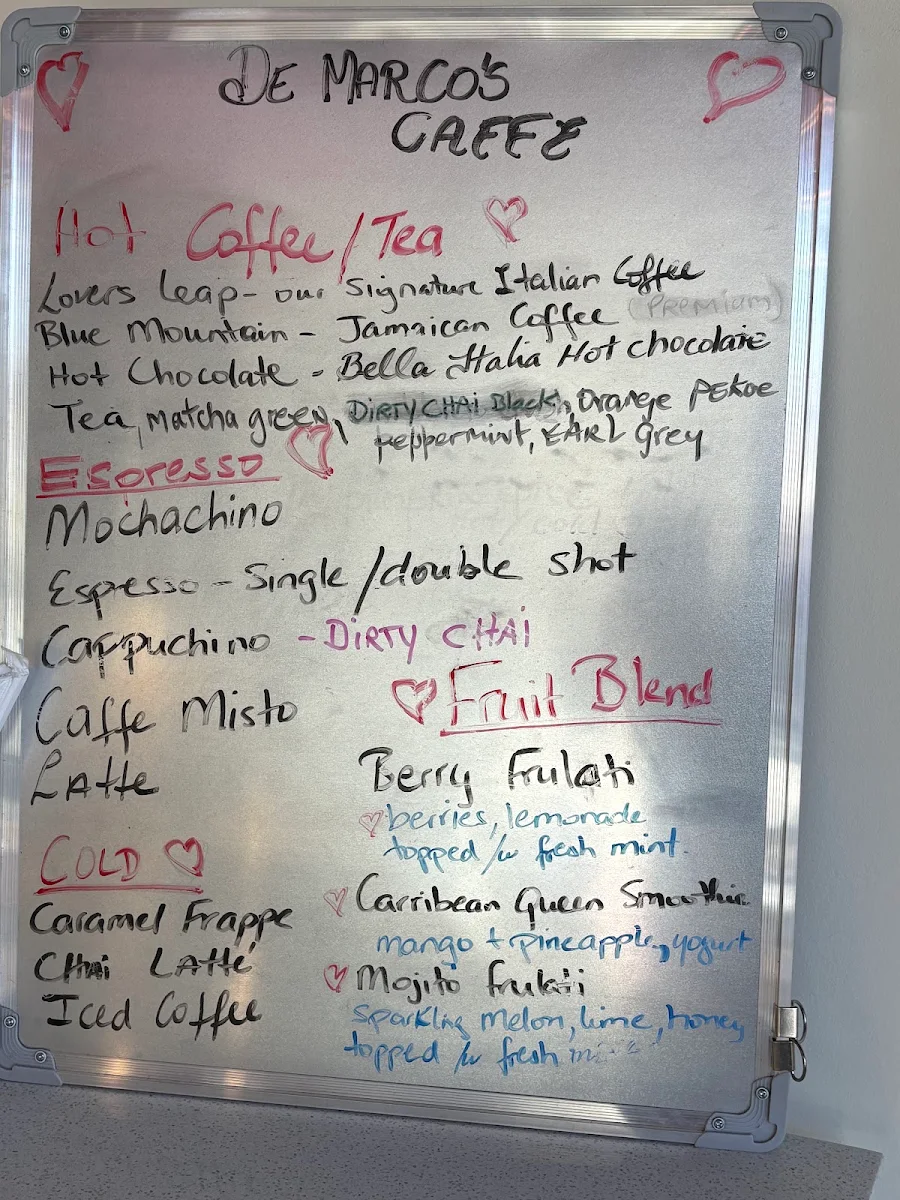 DE MARCO'S
CAFFE
Hot Coffee/Tea
Lovers Leap- our Signature Italian Coffee
Blue Mountain - Jamaican Coffee (PREMIUM)
Hot Chocolate - Bella Italia Hot chocolate
Tea, matcha green, DIRTY CHAI Black, Orange PEKOE
peppermint, EARL Grey
Espresso
Mochachino
Espresso - Single/double shot
Cappuchino - DIRTY CHAI
Caffe Misto
Latte
Fruit Blend
Berry Frulati
berries, lemonade
topped /w fresh mint.
Carribean Queen Smoothie
mango + pineapple, yogurt
Mojito Frulati
Sparkling melon, lime, honey,
topped /w fresh
COLD
Caramel Frappe
CHai LATTE
Iced Coffee